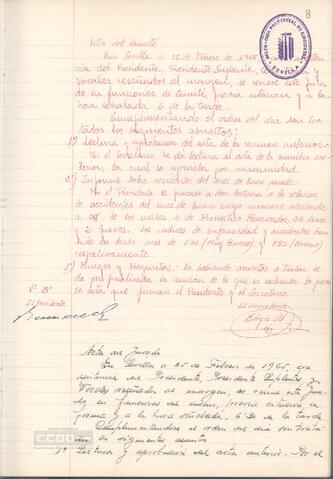 8
Acta del Comité
En Sevilla a 25 de Febrero de 1965
cia del Presidente, Presidente Suplente,
y vocales reseñados al margen, se reune este Jura
do en funciones de Comité, previa citacion y a la
hora señalada 6 de la tarde.
Cumplimentando el orden del dia son tra
tados los siguientes asuntos:
1º) Lectura y aprobacion del acta de la reunion anterior.
Por el Secretario, se da lectura al acta de la reunion ante
rior, la cual es aprobada por unanimidad.
2º) Informe sobre accidentes del mes de Enero pasado.-
Por el Presidente se procede a dar lectura a la relacion
de accidentes del mes de Enero cuyo numero asciende
a 28, de los cuales 4 de Pronostico Reservados, 22 Leves
y 2 Graves. Los indices de enfermedad y accidentes han
sido de dicho mes de (Muy Bueno) y (Bueno)
respectivamente.
3º) Ruegos y Preguntas.- No habiendo asuntos a tratar se
da por finalizada la reunion de la que se extiende la pre
se acta que firman el Presidente y el Secretario.
Vº Bº
El Presidente
El Secretario
Acta de Jurado
En Sevilla a 25 de Febrero de 1965, con
asistencia del Presidente, Presidente Suplente y
Vocales reseñados al margen, se reune este Jura
do en funciones del mismo, previa citacion en
forma y a la hora señalada, 6 de la tarde
Cumplimentandose el orden del dia son trata
dos los siguientes asuntos
1º) Lectura y aprobacion del acta anterior. Por el